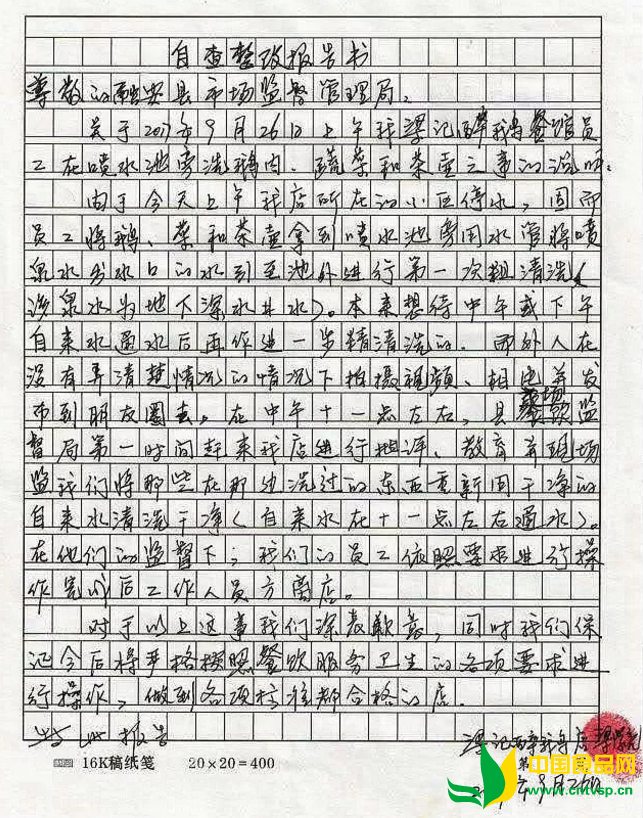 自查整改报告书
尊敬的融安县市场监督管理局。
关于2017年9月26日上午我梁记醉我鹅餐馆员
工在喷水池旁洗鹅肉、蔬菜和茶壶之事的说明:
由于今天上午我店所在的小区停水,因而
员工将鹅、菜和茶壶拿到喷水池旁用水管将喷
泉水出水口的水引至池外进行第一次粗清洗(
该泉水为地下深水井水)。本来想待中午或下午
自来水通水后再作进一步精清洗的。而外人在
没有弄清楚情况的情况下拍摄视频、相片并发
布到朋友圈去。在中午十一点左右,县市场监
督局第一时间赶来我店进行批评、教育并现场
监我们将那些在那边洗过的东西重新用干净的
自来水清洗干净(自来水在十一点左右通水)。
在他们的监督下;我们的员工依照要求进行操
作完成后工作人员方离店。
对于以上这事我们深表歉意,同时我们保
证今后将严格按照餐饮服务卫生的各项要求进
行操作,做到各项标准都合格的店。
特此报告
梁记醉我鹅店
16K稿纸笺 20×20=400 第
9月26日
中国食品网
www.cntvsp.cn